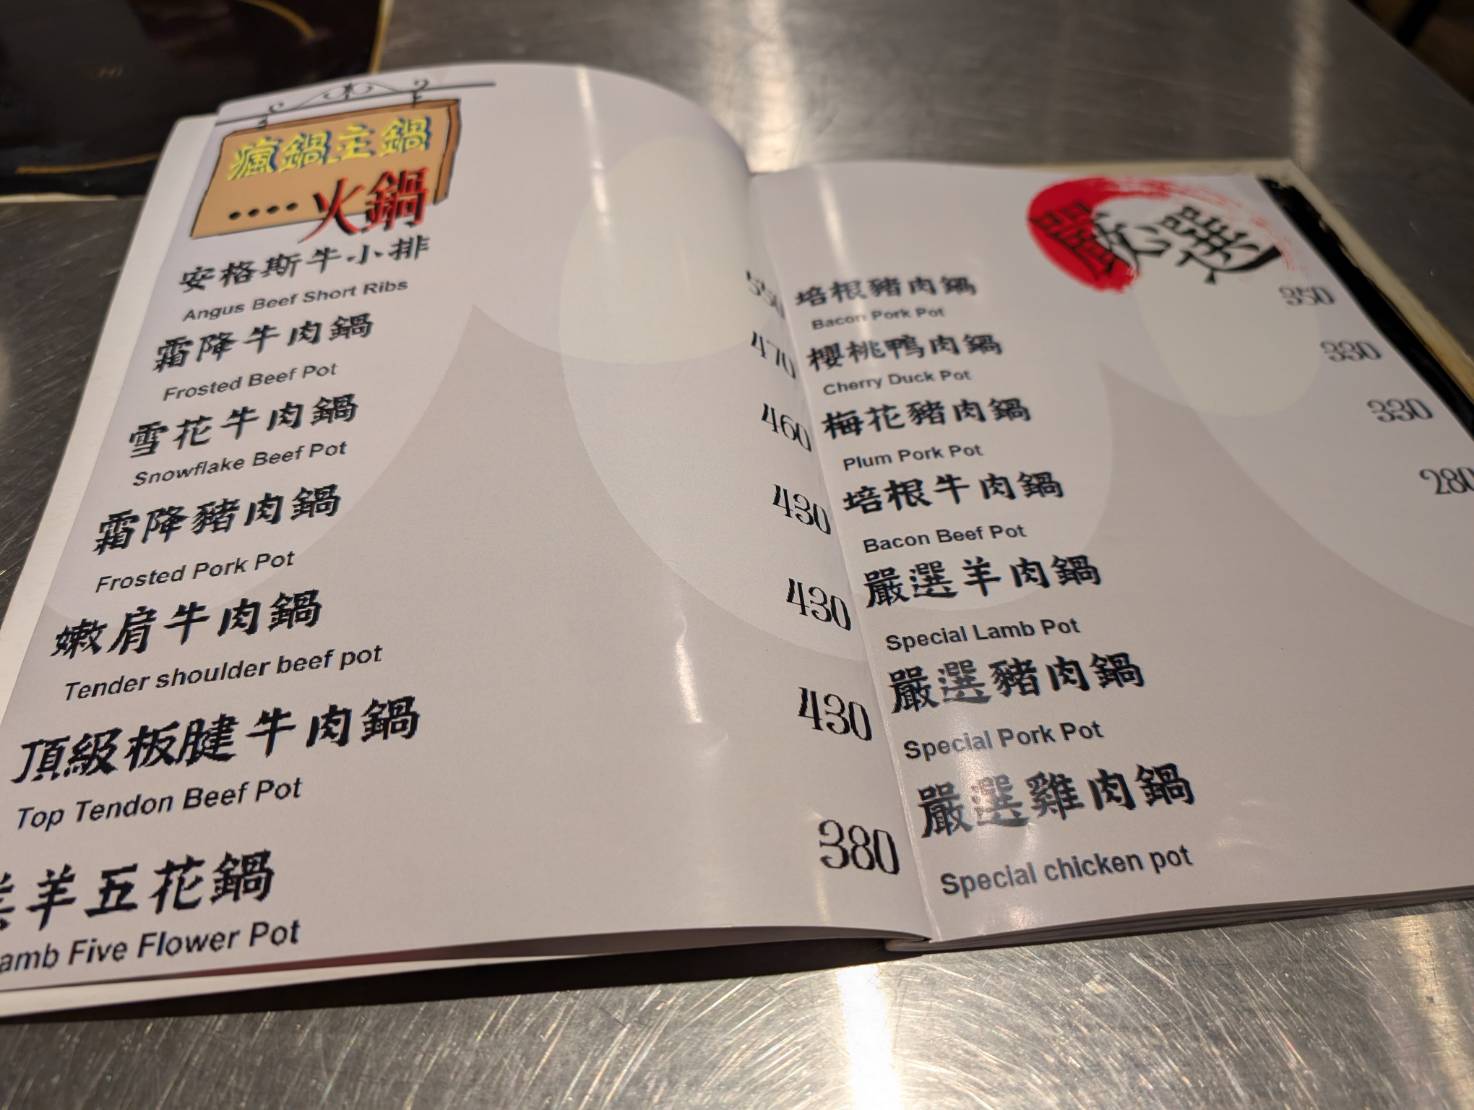 瘋鍋主鍋
....火鍋
安格斯牛小排
Angus Beef Short Ribs
550
霜降牛肉鍋
Frosted Beef Pot
470
雪花牛肉鍋
Snowflake Beef Pot
460
霜降豬肉鍋
Frosted Pork Pot
430
嫩肩牛肉鍋
Tender shoulder beef pot
430
頂級板腱牛肉鍋
Top Tendon Beef Pot
430
羊五花鍋
Lamb Five Flower Pot
380
嚴選
培根豬肉鍋
Bacon Pork Pot
350
櫻桃鴨肉鍋
Cherry Duck Pot
330
梅花豬肉鍋
Plum Pork Pot
330
培根牛肉鍋
Bacon Beef Pot
280
嚴選羊肉鍋
Special Lamb Pot
嚴選豬肉鍋
Special Pork Pot
嚴選雞肉鍋
Special chicken pot